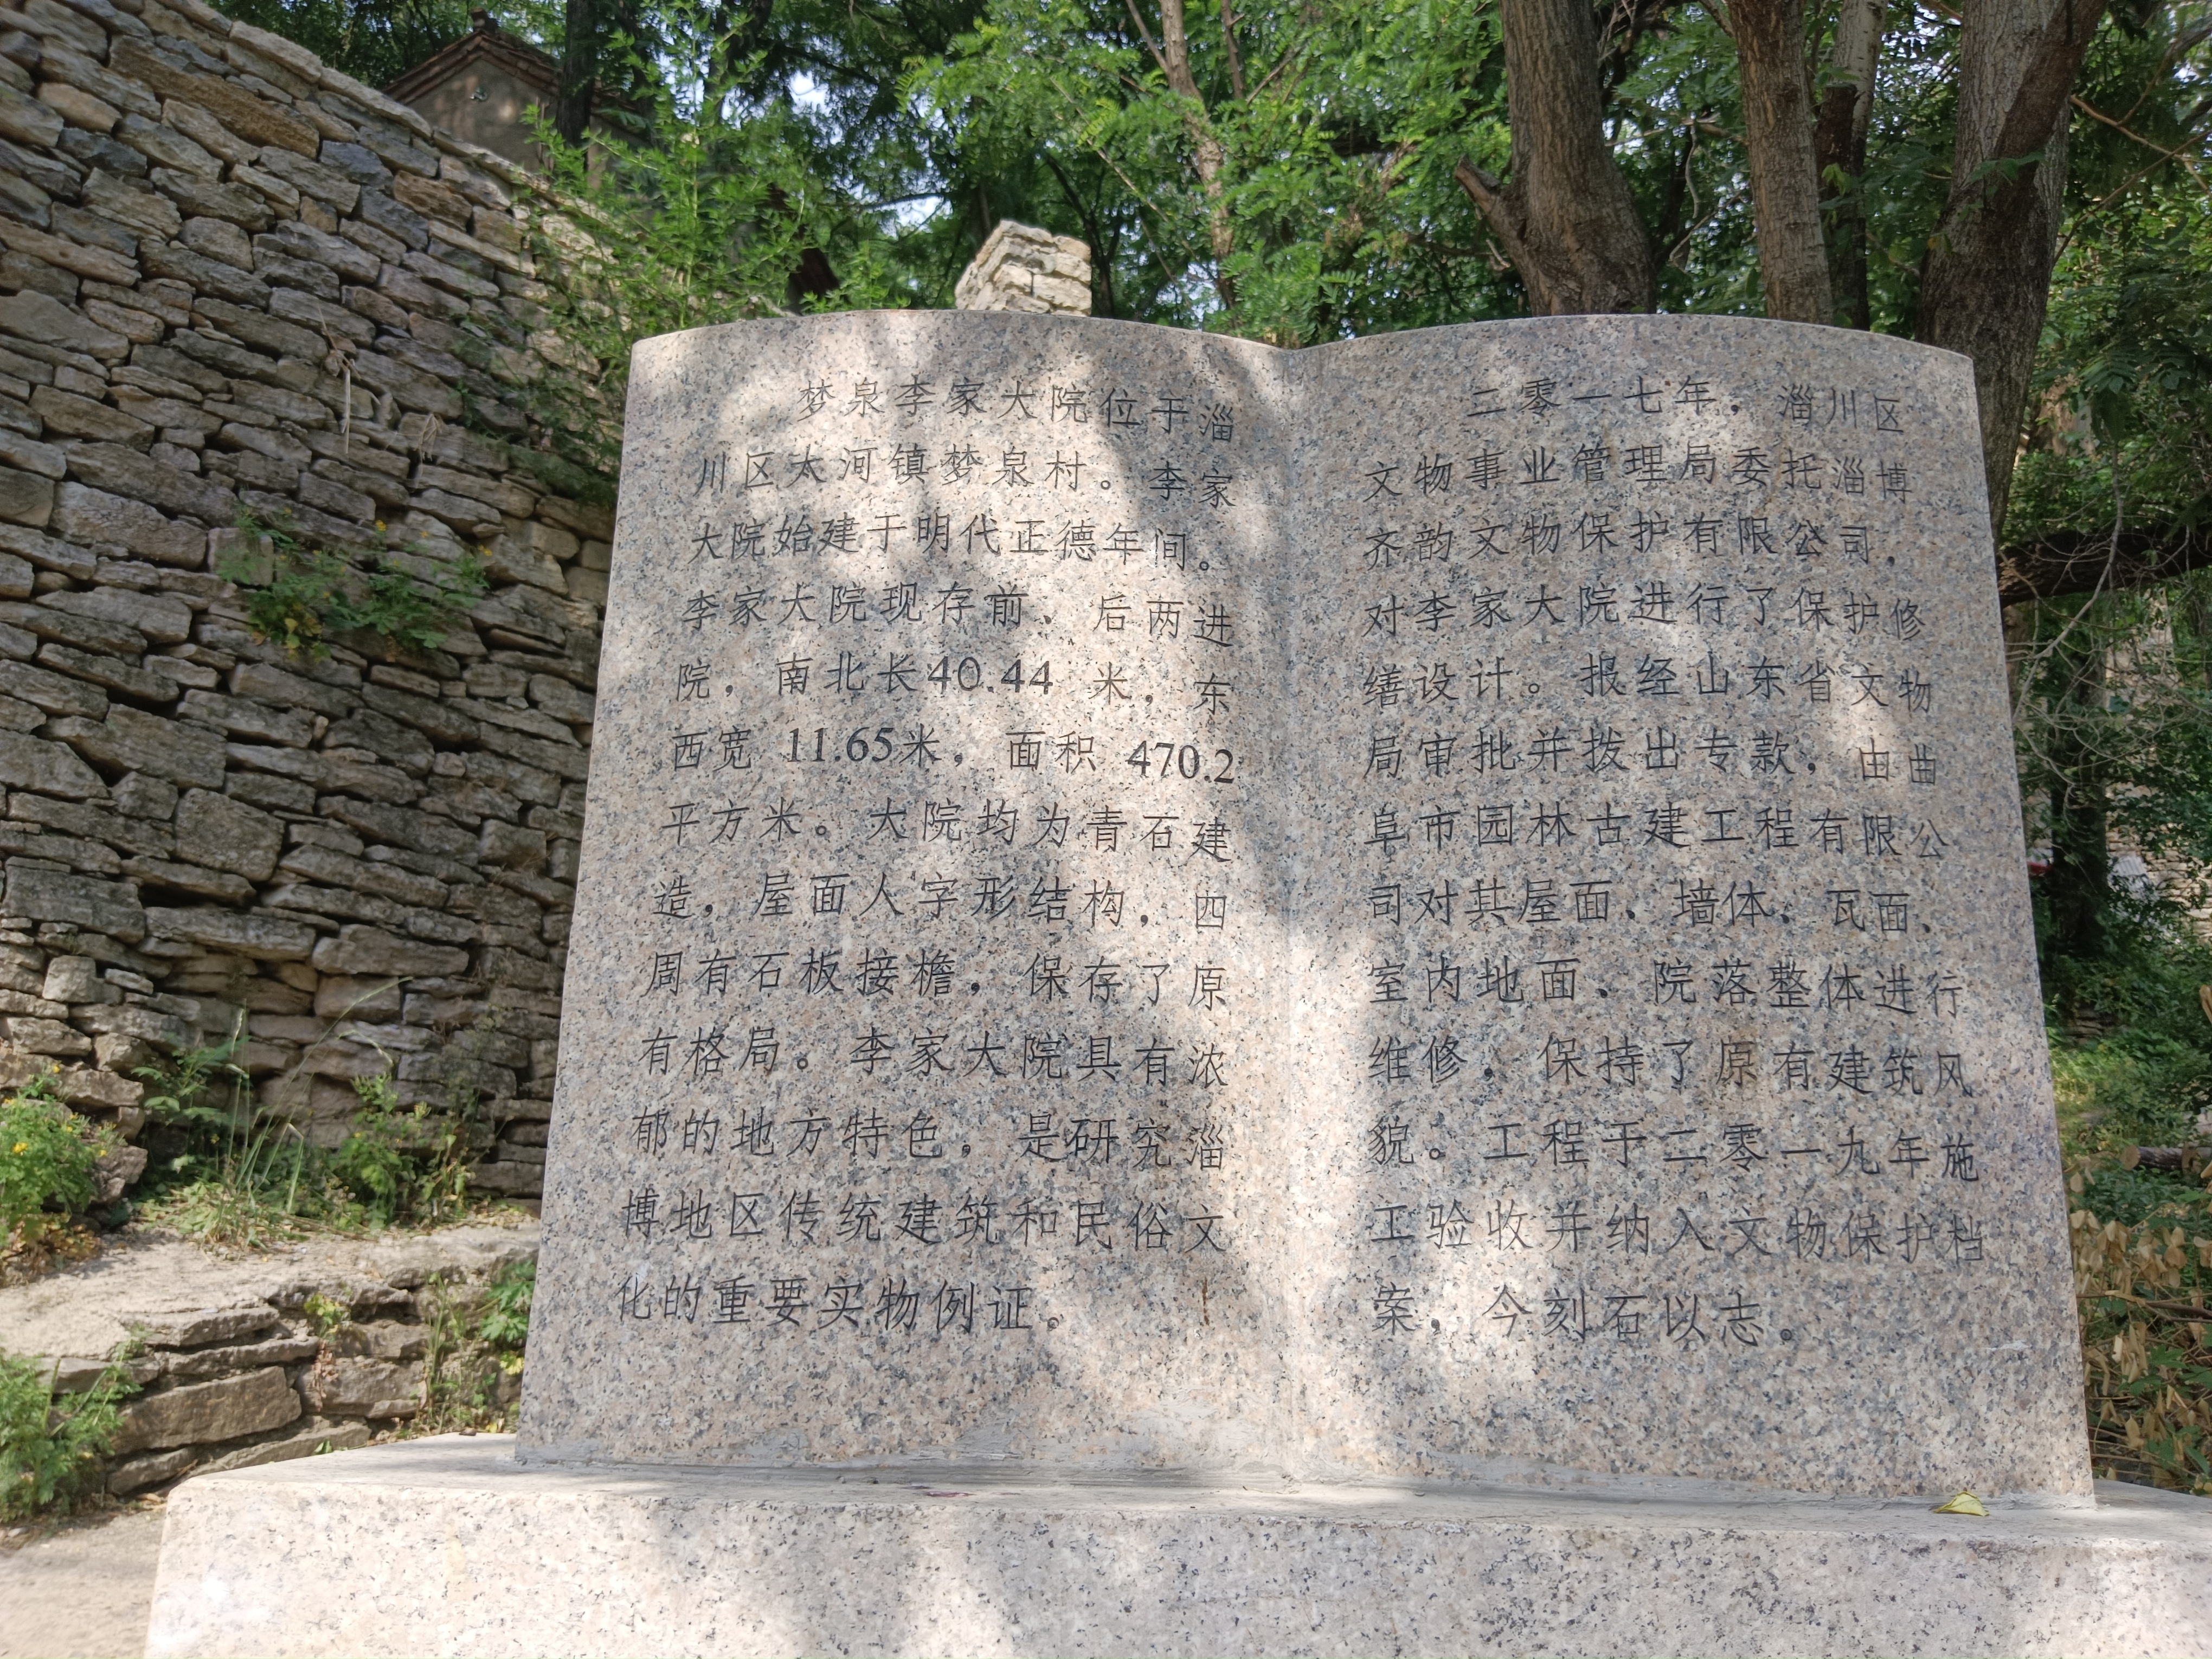 梦泉李家大院位于淄
川区太河镇梦泉村。李家
大院始建于明代正德年间。
李家大院现存前、后两进
院，南北长40.44 米，东
西宽 11.65米，面积 470.2
平方米。大院均为青石建
造，屋面人字形结构，四
周有石板接檐，保存了原
有格局。李家大院具有浓
郁的地方特色，是研究淄
博地区传统建筑和民俗文
化的重要实物例证。
二零一七年，淄川区
文物事业管理局委托淄博
齐韵文物保护有限公司，
对李家大院进行了保护修
缮设计。报经山东省文物
局审批并拨出专款，由曲
阜市园林古建工程有限公
司对其屋面、墙体、瓦面、
室内地面、院落整体进行
维修，保持了原有建筑风
貌。工程于二零一九年施
工验收并纳入文物保护档
案，今刻石以志。